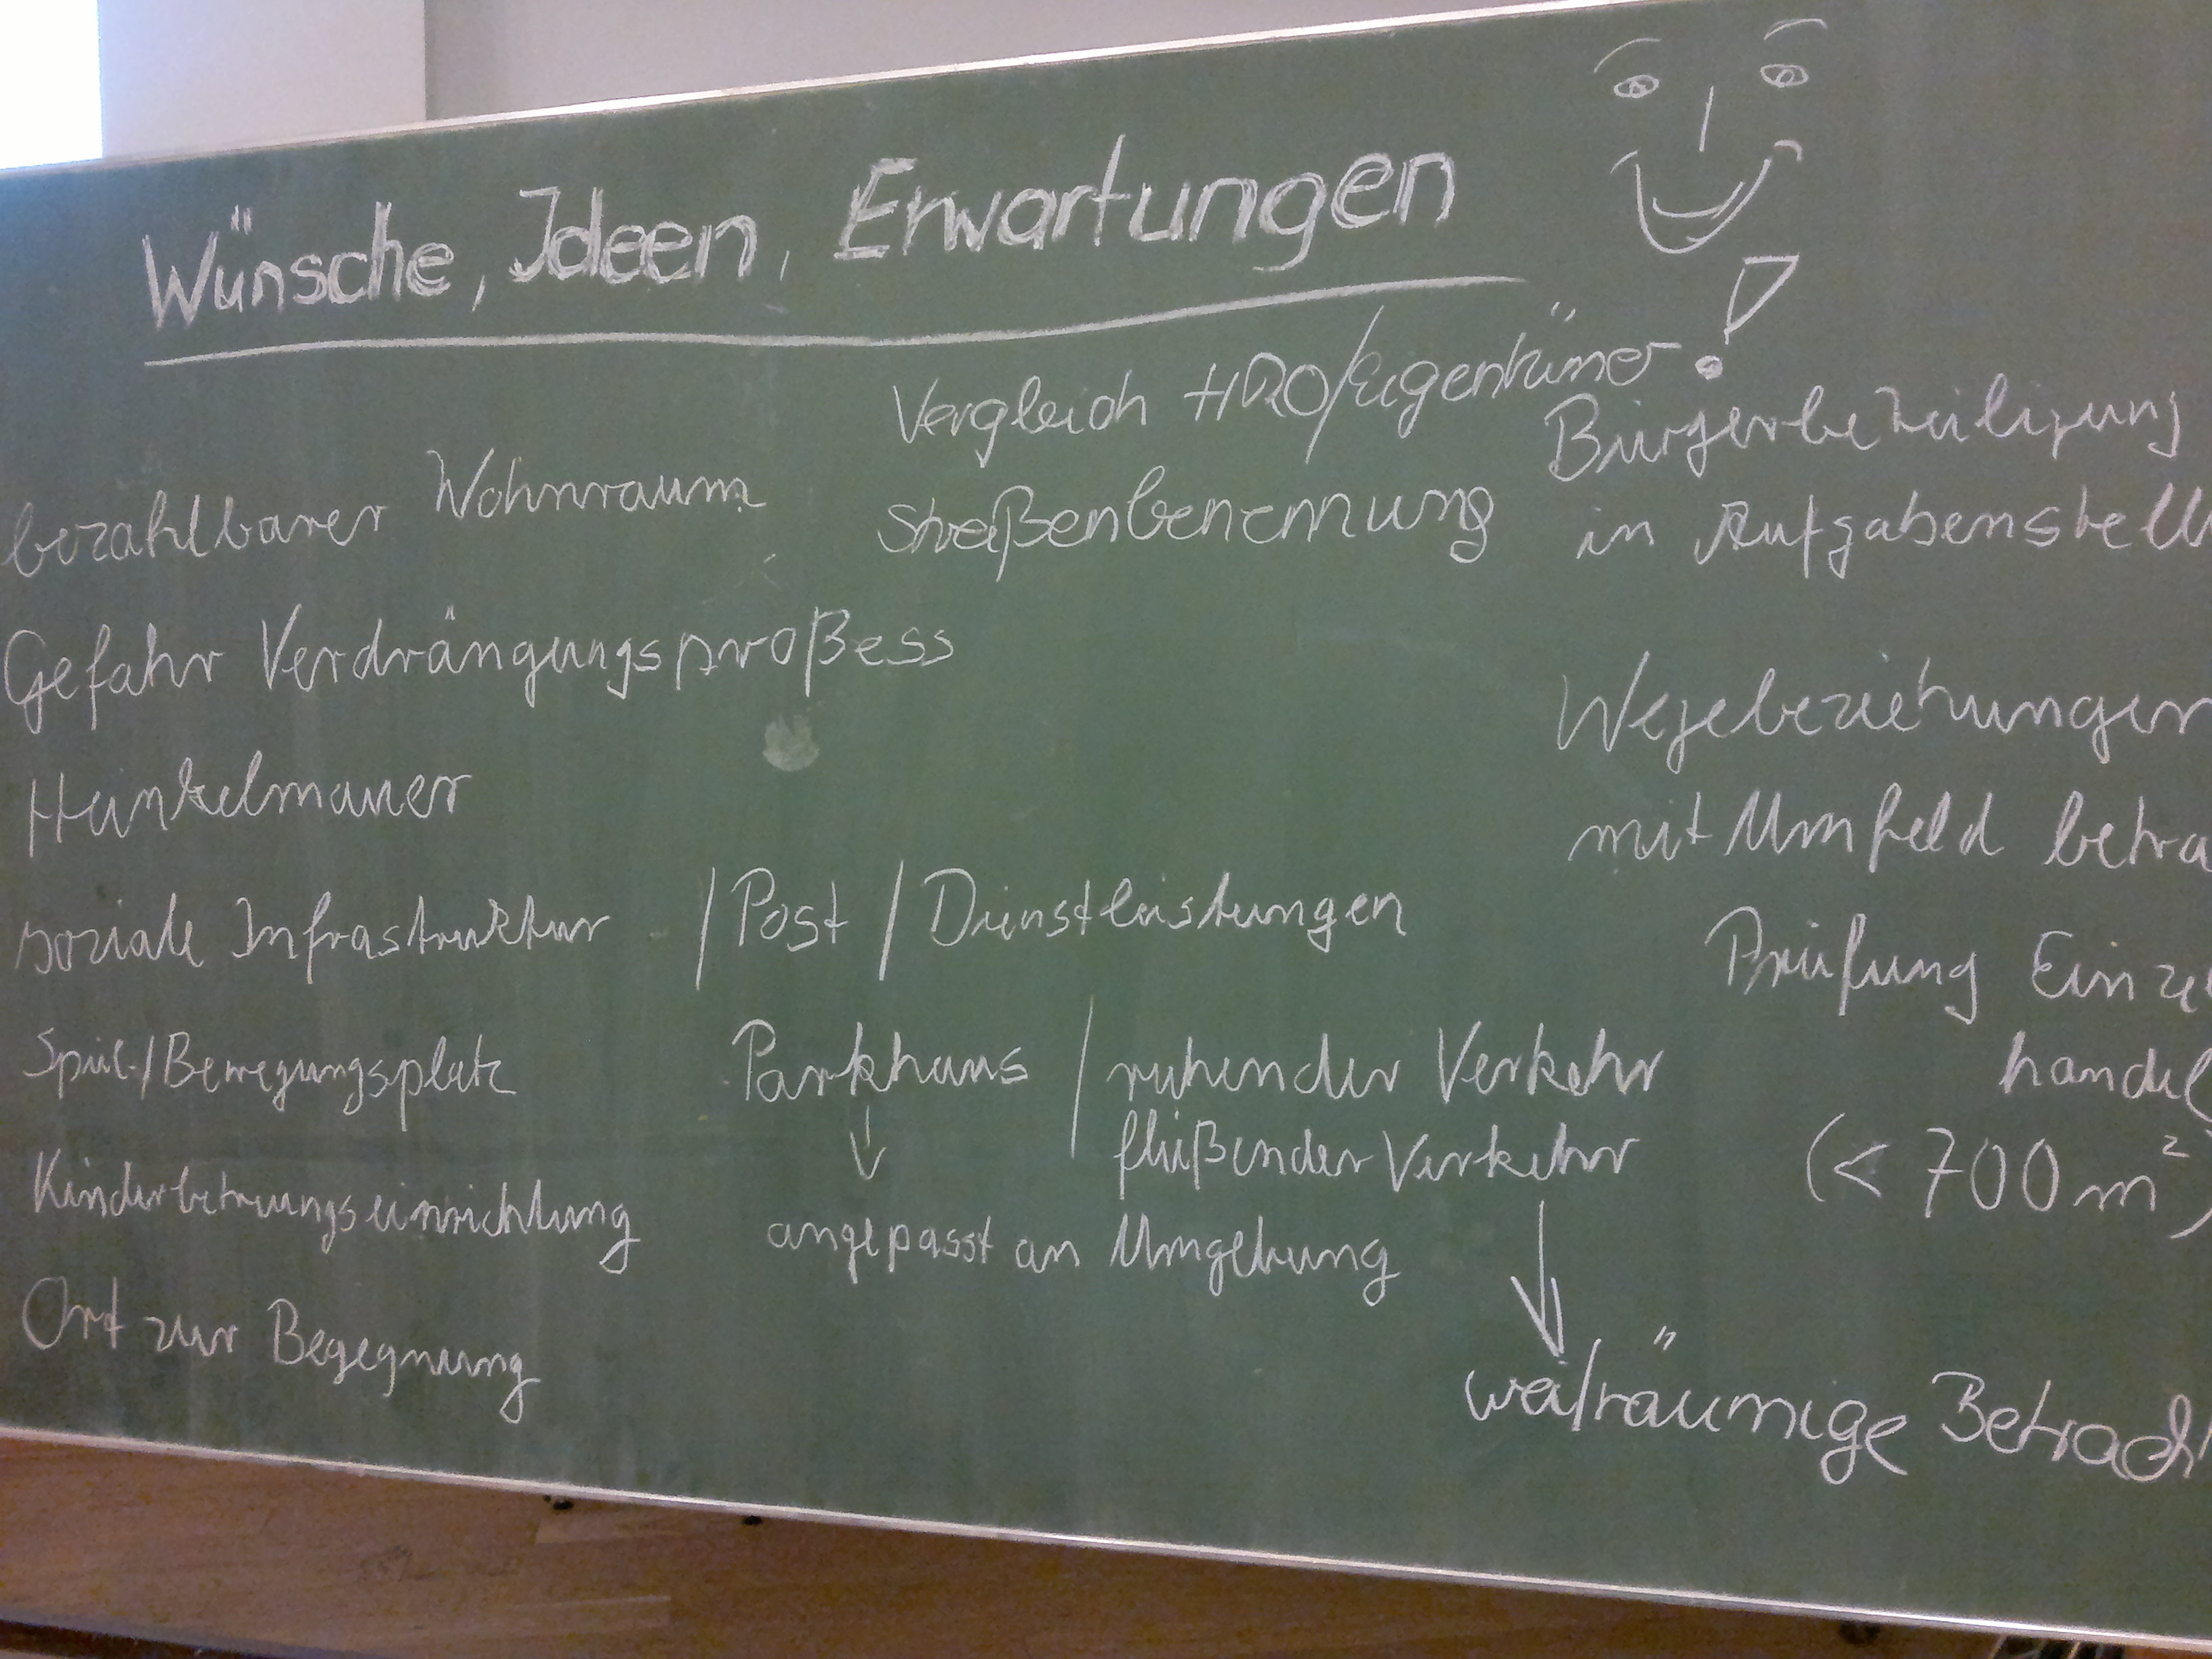 Wünsche, Ideen, Erwartungen
Vergleich HRO/Eigentümer !
bezahlbarer Wohnraum
Straßenbenennung
Bürgerbeteiligung
in Aufgabenstell
Gefahr Verdrängungsproßess
Heinkelmauer
Wegebeziehungen
mit Umfeld betra
soziale Infrastruktur / Post / Dienstleistungen
Prüfung Einzel
handel
(< 700 m²)
Spiel-/Bewegungsplatz
Parkhaus / ruhender Verkehr
fließender Verkehr
angepasst an Umgebung
Kinderbetreuungseinrichtung
Ort zur Begegnung
weiträumige Betrach